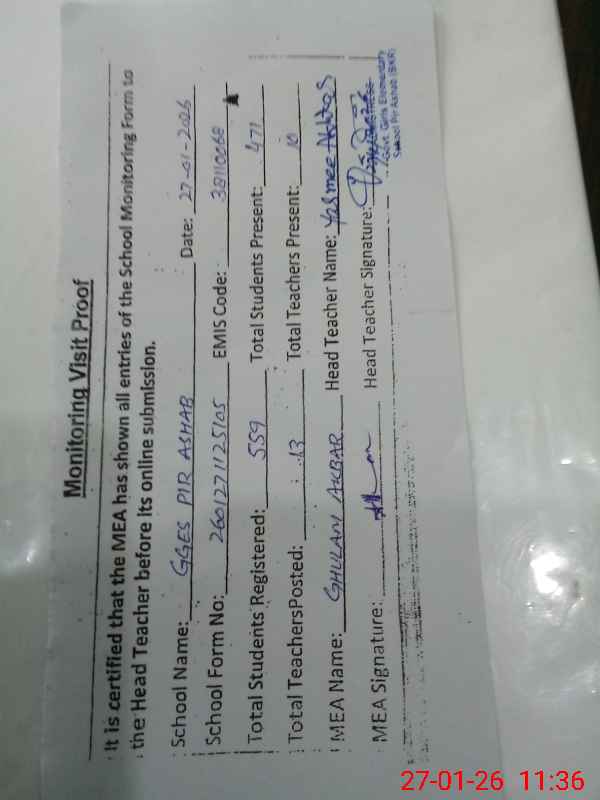 Monitoring Visit Proof
It is certified that the MEA has shown all entries of the School Monitoring Form to
the Head Teacher before its online submission.
School Name: GGES PIR ASHAB Date: 27-01-2026
School Form No: 2601271125105 EMIS Code: 38110068
Total Students Registered: 559 Total Students Present: 471
Total TeachersPosted: 13 Total Teachers Present: 10
MEA Name: GHULAM AKBAR Head Teacher Name: Yasmee Akhtar
MEA Signature: Head Teacher Signature:
Govt. Girls Elementary
School Pir Ashab (BKR)
27-01-26 11:36